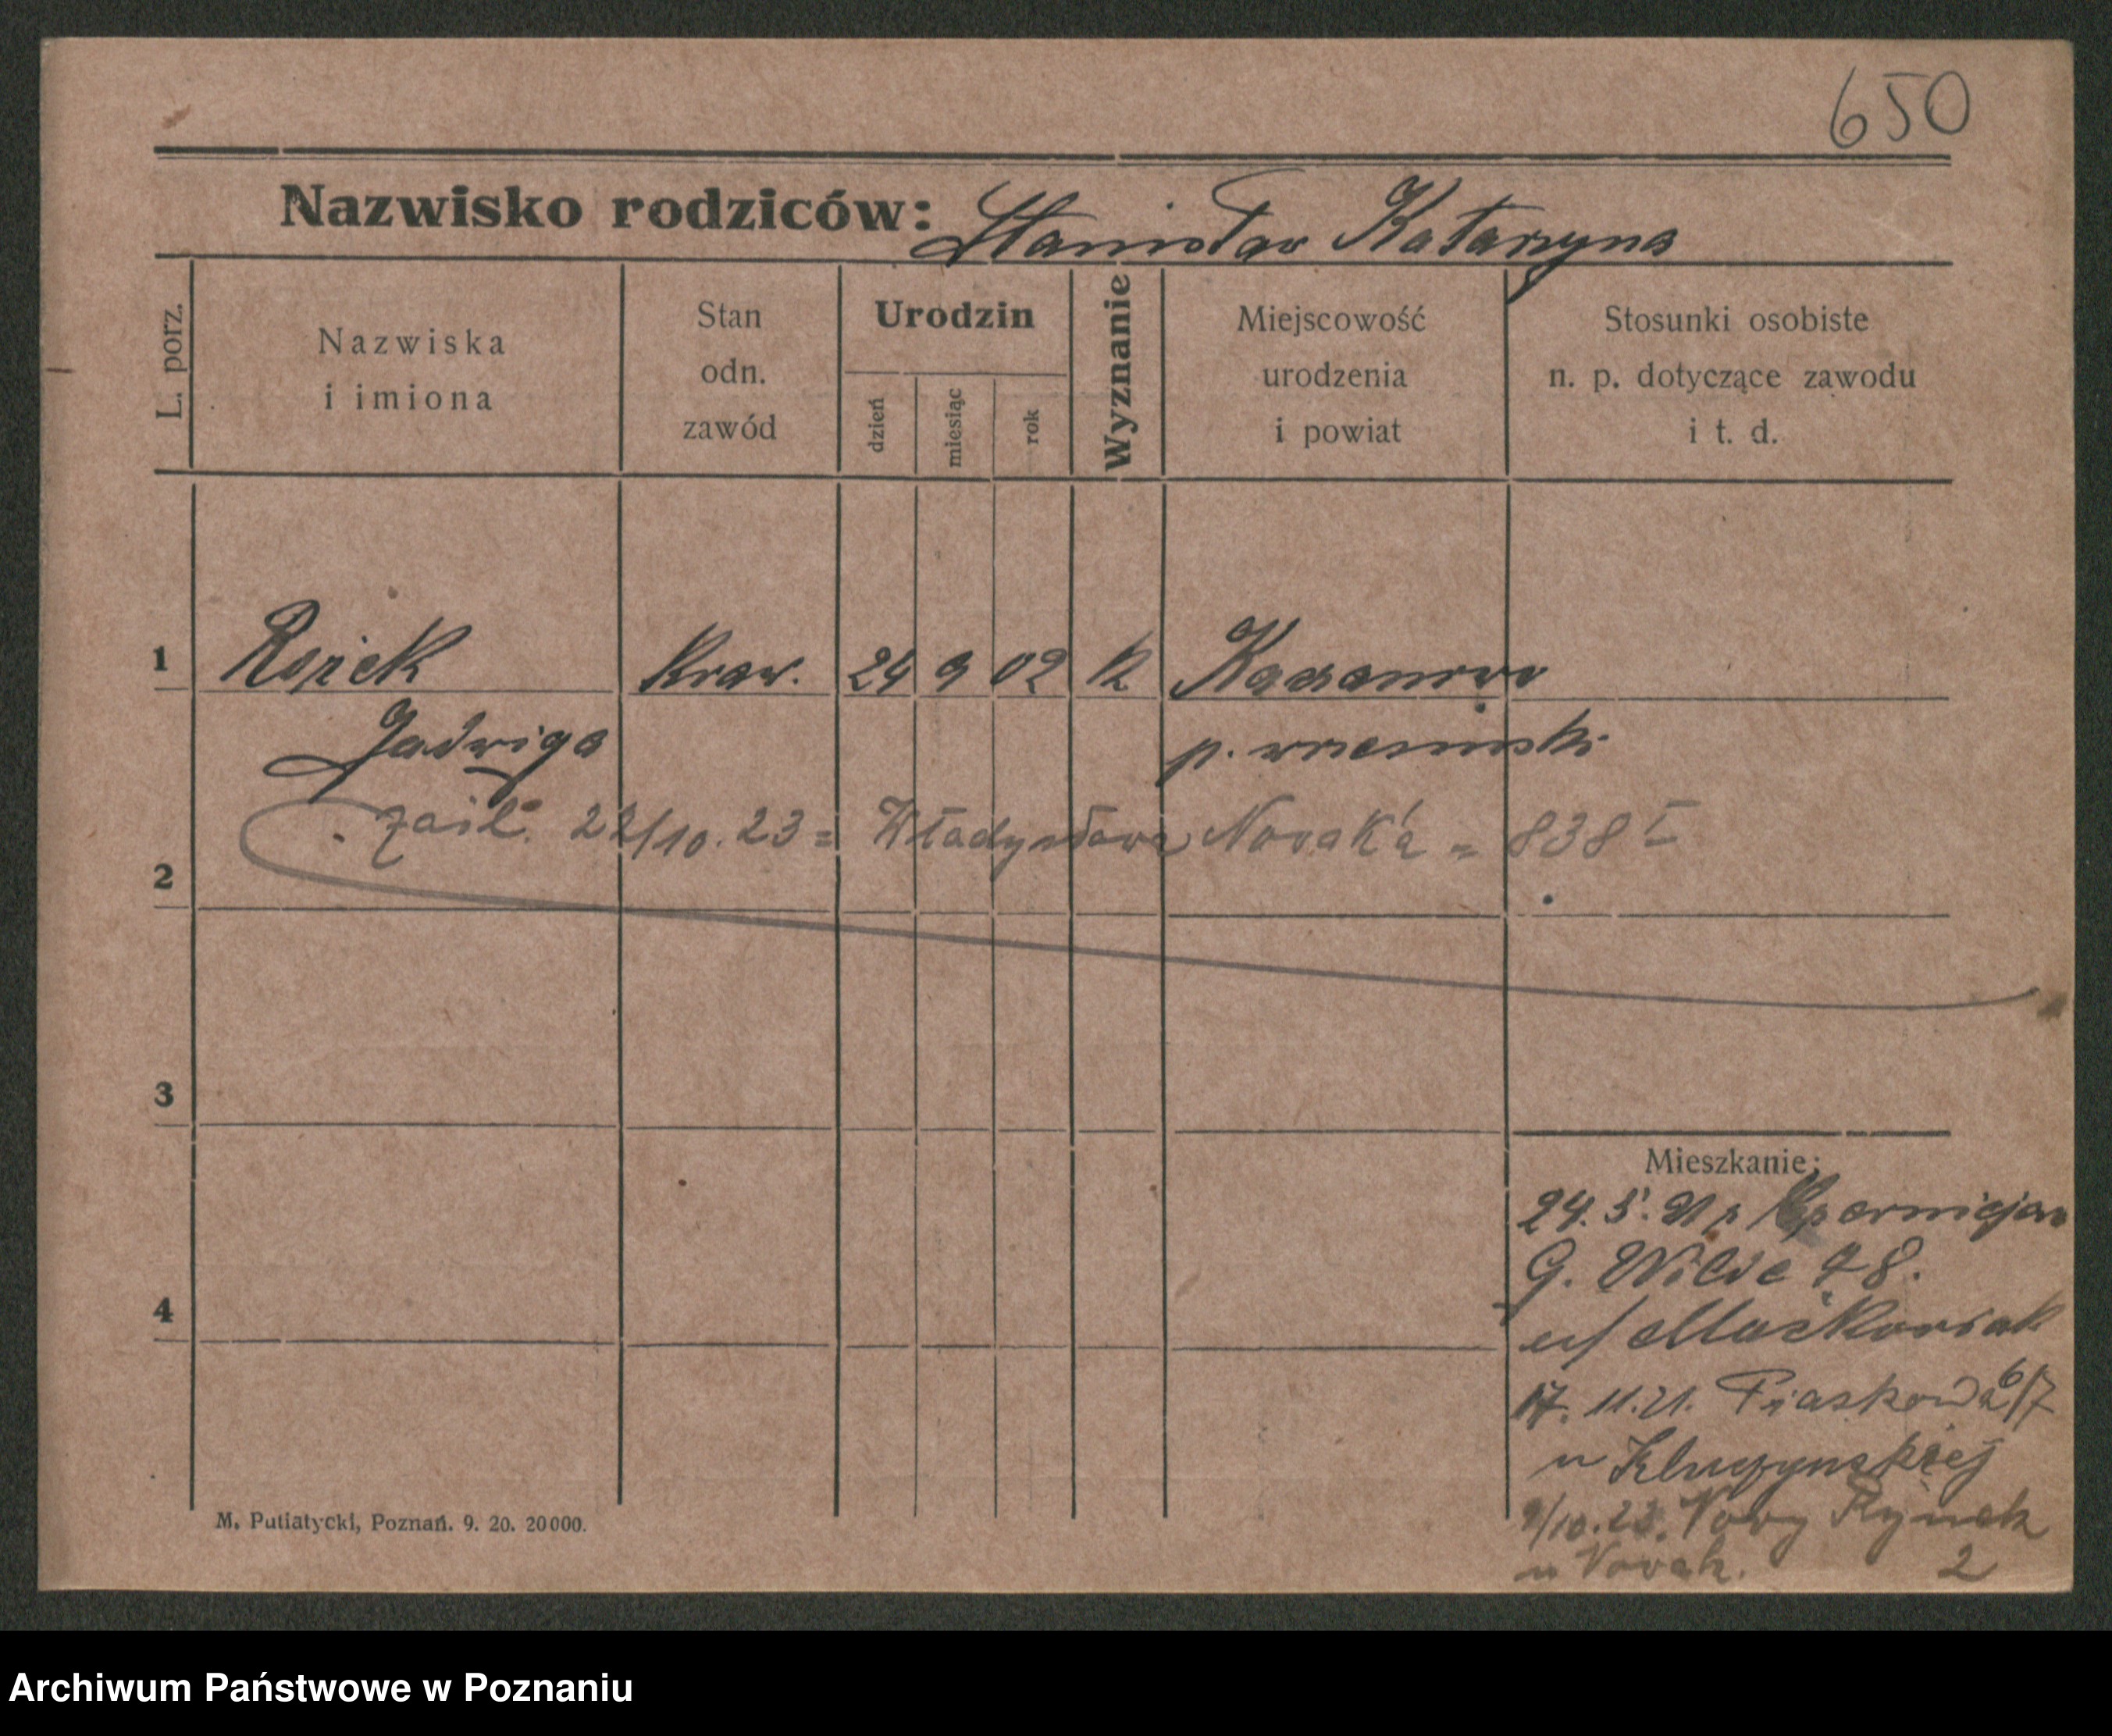 650
Nazwisko rodziców: Stanisław Katarzyna
L. porz.
Nazwiska
i imiona
Stan
odn.
zawód
Urodzin
dzień
miesiąc
rok
Wyznanie
Miejscowość
urodzenia
i powiat
Stosunki osobiste
n. p. dotyczące zawodu
i t. d.
1 Rożek Kraw. 24 9 02 K
Jadwiga p.
zaśl. 22/10. 23 = Władysława Nowak'a = 838 I
2
3
4
Mieszkanie:
24. 5. 21
G. Wilda 78.
Maćkowiak
17. 11. 21. Piaskowa 6/7
u Kluczynskiej
9/10. 23. Nowy Rynek
u Nowak. 2
M. Putiatycki, Poznań. 9. 20. 20000.
Archiwum Państwowe w Poznaniu